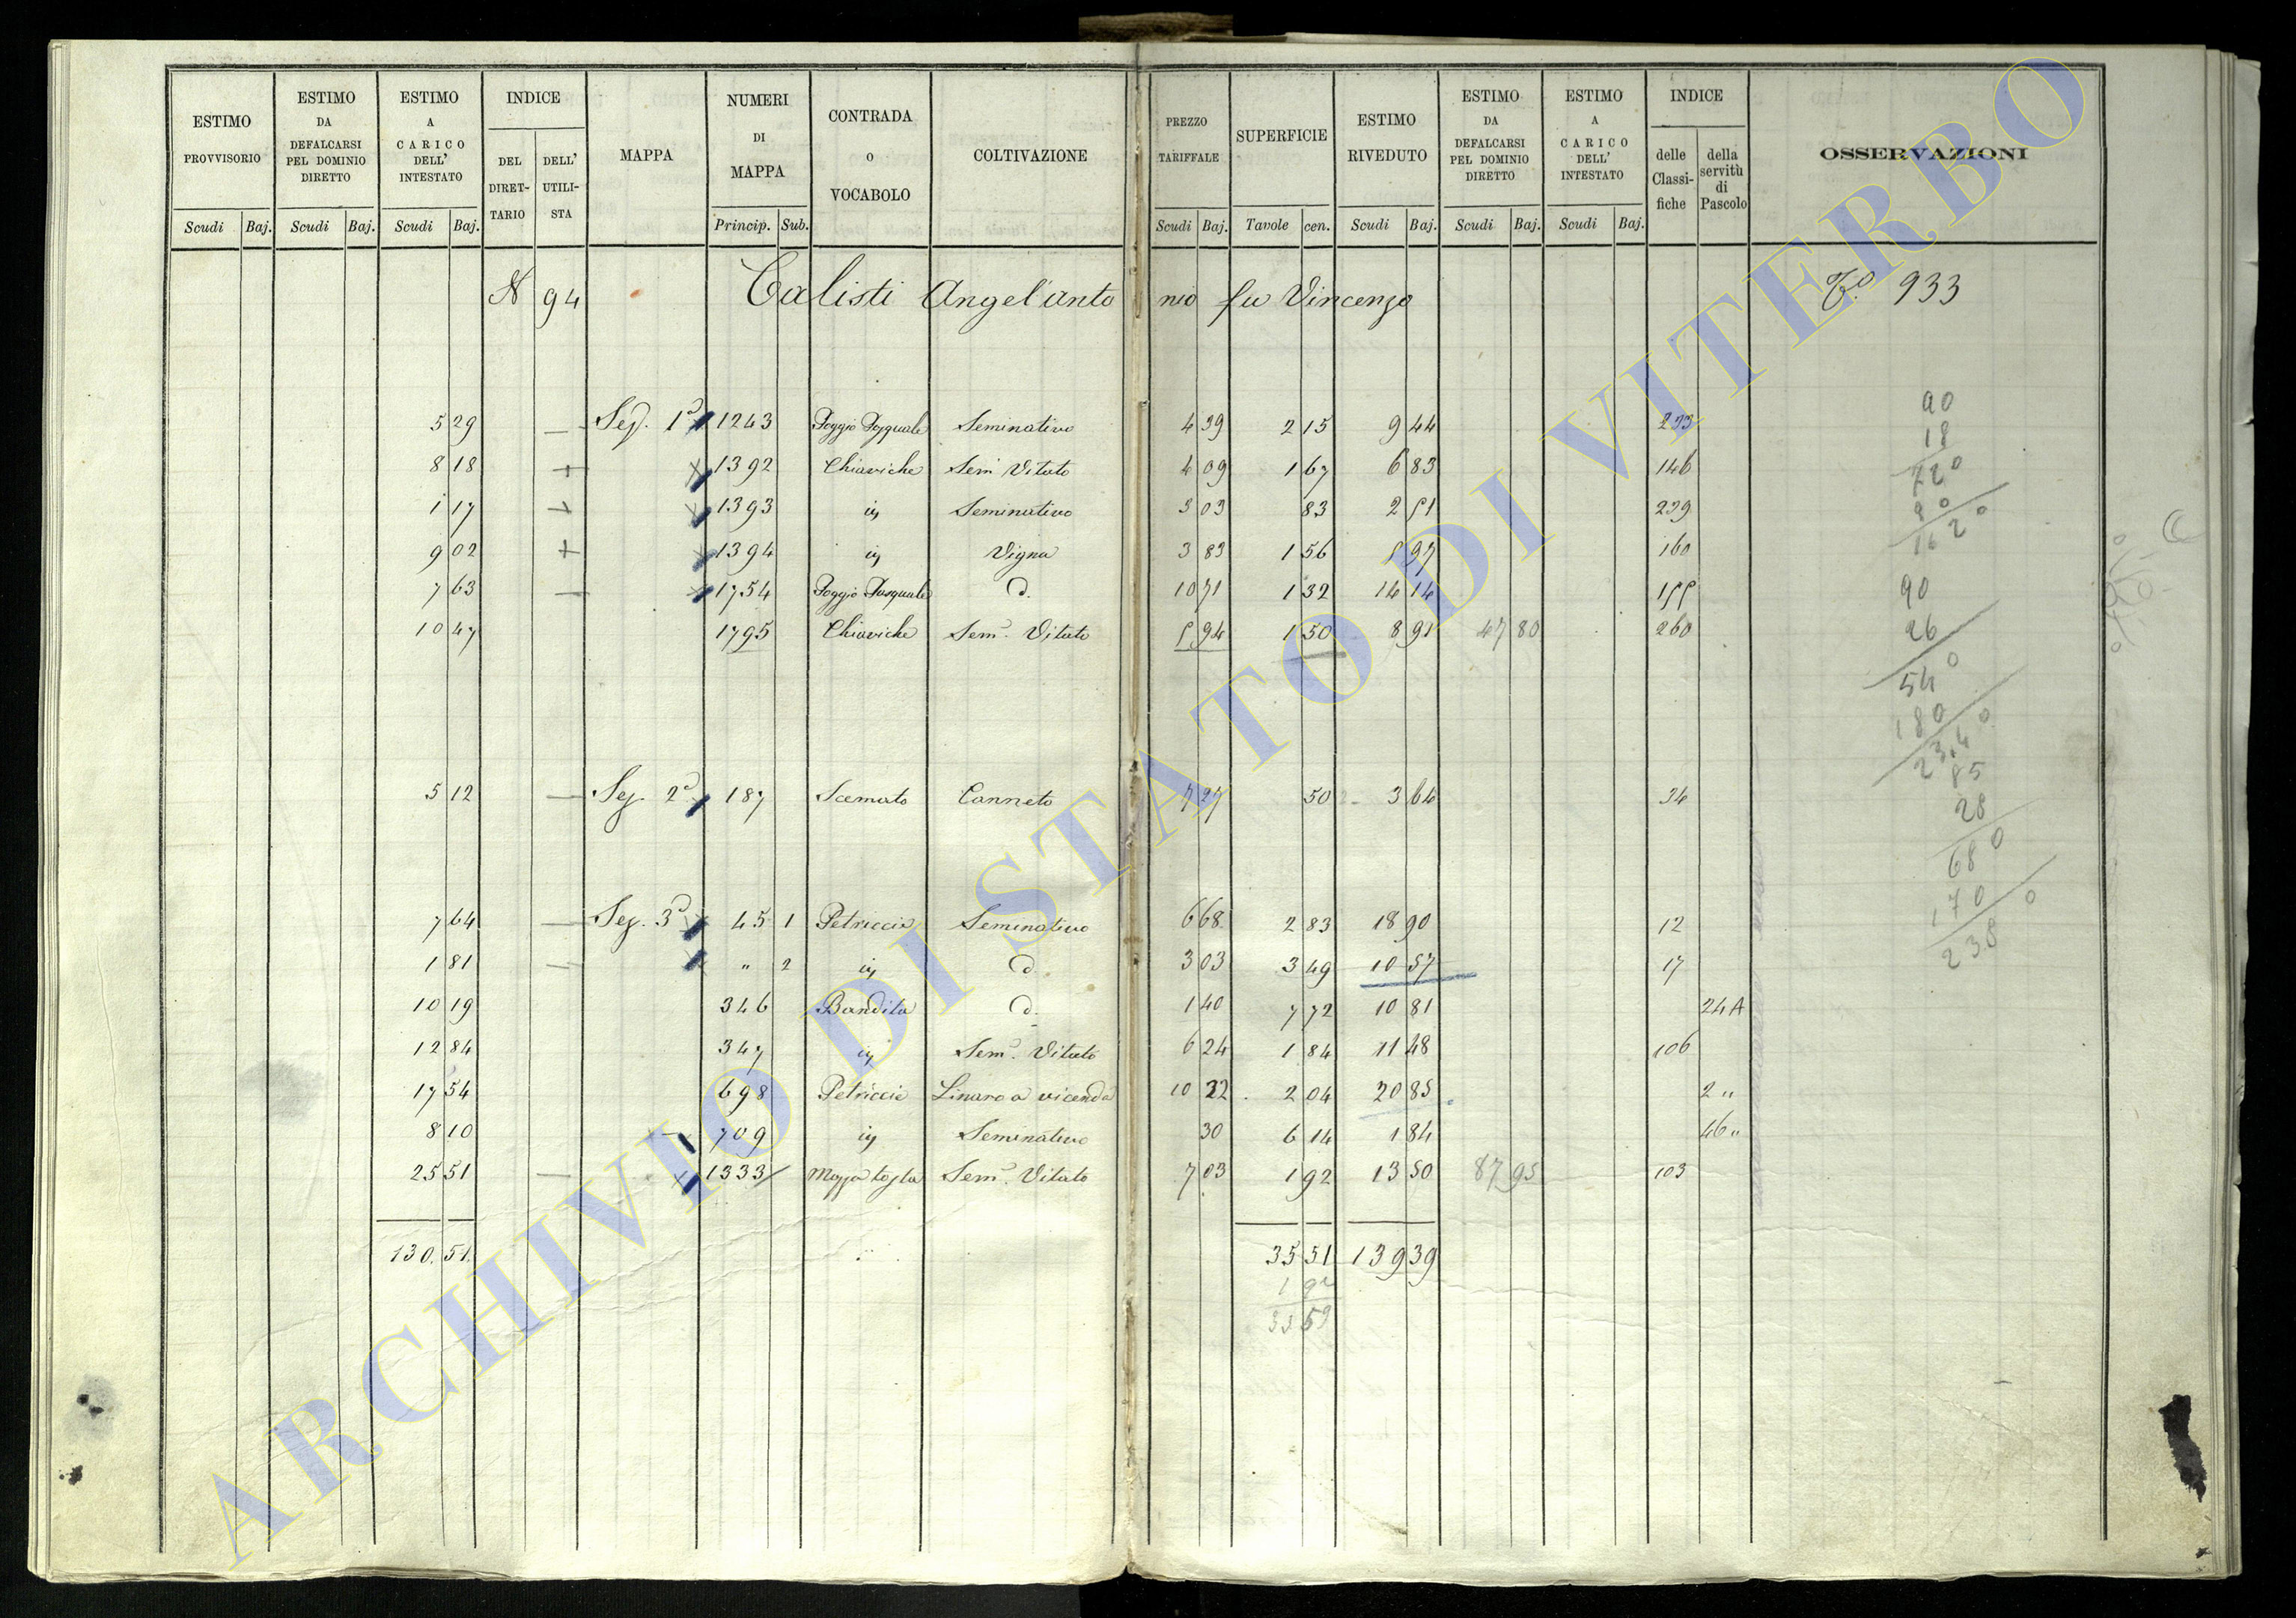 ESTIMO PROVVISORIO | ESTIMO DA DEFALCARSI PEL DOMINIO DIRETTO | ESTIMO A CARICO DELL' INTESTATO | INDICE DEL DIRETTARIO | DELL' UTILISTA | MAPPA | NUMERI DI MAPPA | CONTRADA O VOCABOLO | COLTIVAZIONE | PREZZO TARIFFALE | SUPERFICIE | ESTIMO RIVEDUTO | ESTIMO DA DEFALCARSI PEL DOMINIO DIRETTO | ESTIMO A CARICO DELL' INTESTATO | INDICE delle Classifiche | della servitù di Pascolo | OSSERVAZIONI
Scudi Baj. Scudi Baj. Scudi Baj. Princip. Sub. Scudi Baj. Tavole cen. Scudi Baj. Scudi Baj. Scudi Baj.
N 94 Calisti Angel'antonio fu Vincenzo 933
5 29 Sez. 1ª 1243 Poggio Pasquale Seminativo 4 39 2 15 9 44 233
8 18 1392 Chiaviche Sem Vitato 4 09 1 67 6 83 146
1 17 1393 ivi Seminativo 3 03 83 2 51 239
9 02 1394 ivi Vigna 3 83 1 56 5 97 160
7 63 1754 Poggio Pasquale d. 10 71 1 32 14 14 155
10 47 1795 Chiaviche Semº Vitato 5 94 1 50 8 91 47 80 260
5 12 Sez. 2ª 187 Scemato Canneto 7 27 50 3 64 34
7 64 Sez. 3ª 45 1 Petriccia Seminativo 6 68 2 83 18 90 12
1 81 " 2 ivi d. 3 03 3 49 10 57 17
10 19 346 Bandita d. 1 40 7 72 10 81 24 A
12 84 347 ivi Semº Vitato 6 24 1 84 11 48 106
17 54 698 Petriccia Linaro a vicenda 10 22 2 04 20 85 2 "
8 10 709 ivi Seminativo 30 6 14 1 84 46 "
25 51 1333 Semº Vitato 7 03 1 92 13 50 87 95 103
130.51. 35 51 139 39
1 92
33 59
90
18
720
90
1620
90
26
540
180
2340
85
28
680
170
2380
ARCHIVIO DI STATO DI VITERBO